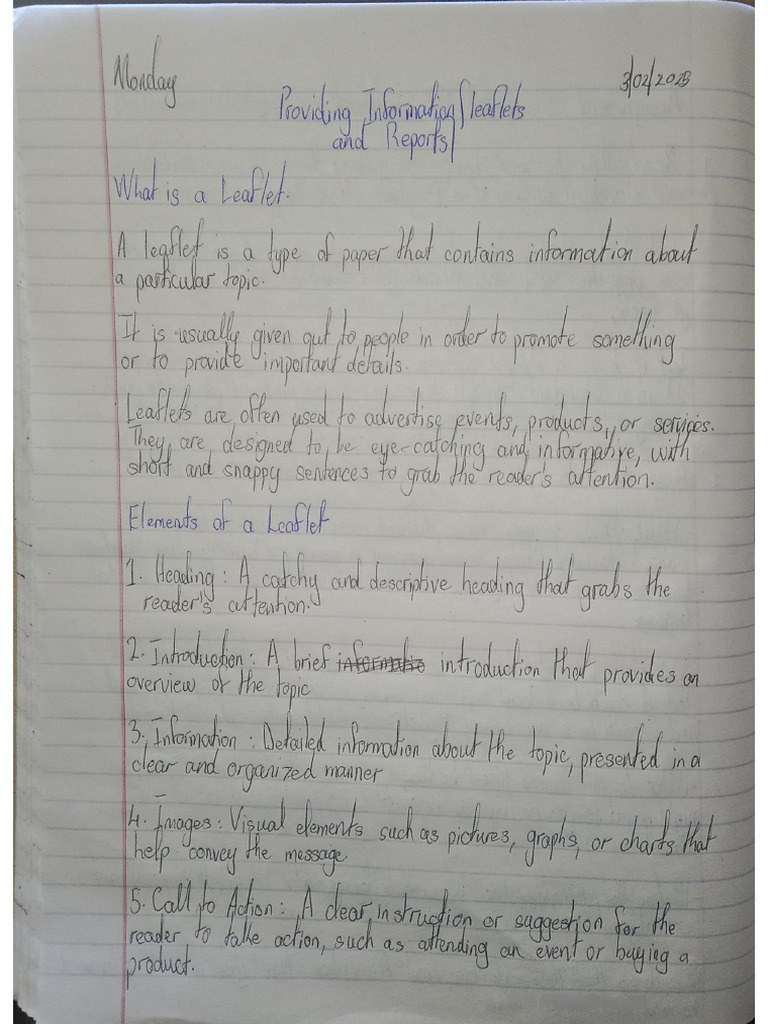 Monday 3/02/2025
Providing Information leaflets
and Reports
What is a Leaflet.
A leaflet is a type of paper that contains information about
a particular topic.
It is usually given out to people in order to promote something
or to provide important details.
Leaflets are often used to advertise events, products, or services.
They are designed to be eye-catching and informative, with
short and snappy sentences to grab the reader's attention.
Elements of a Leaflet
1. Heading: A catchy and descriptive heading that grabs the
reader's attention.
2. Introduction: A brief introduction that provides an
overview of the topic
3. Information: Detailed information about the topic, presented in a
clear and organized manner
4. Images: Visual elements such as pictures, graphs, or charts that
help convey the message.
5. Call to Action: A clear instruction or suggestion for the
reader to take action, such as attending an event or buying a
product.